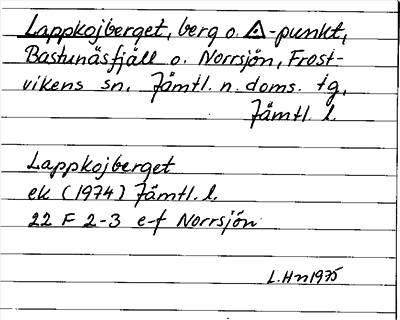 Lappkojberget, berg o. △-punkt,
Bastunäsfjäll o. Norrsjön, Frost-
vikens sn, Jämtl. n. doms. tg,
Jämtl. l.
Lappkojberget
ek (1974) Jämtl. l.
22 F 2-3 e-f Norrsjön
L.Hn 1975